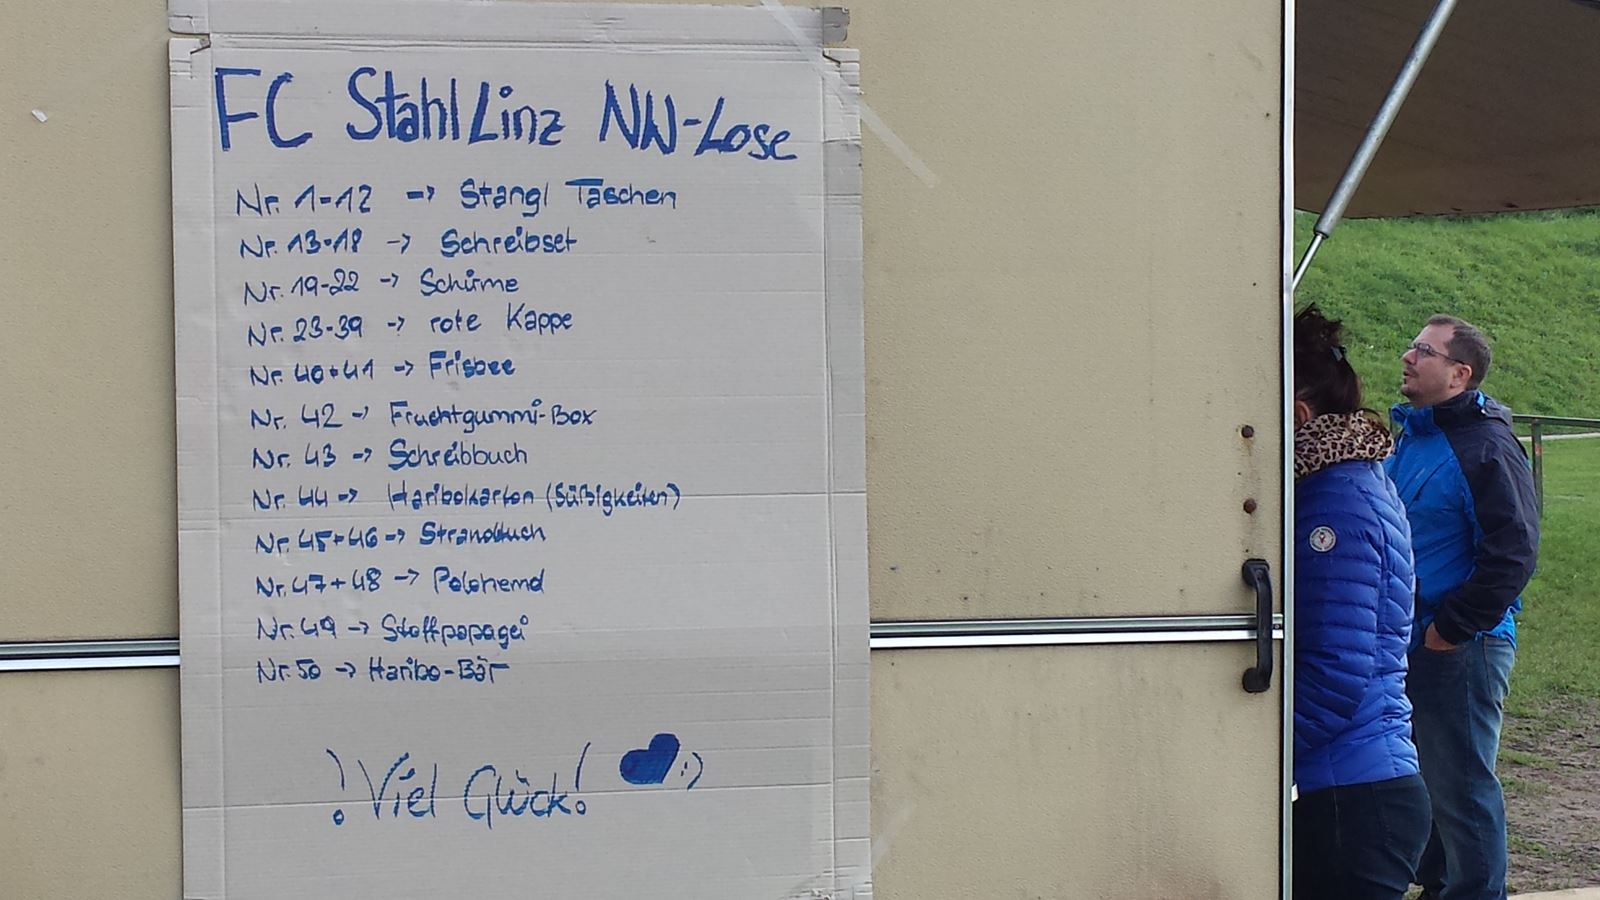 FC Stahl Linz NW-Lose
Nr. 1-12 -> Stangl Taschen
Nr. 13-18 -> Schreibset
Nr. 19-22 -> Schirme
Nr. 23-39 -> rote Kappe
Nr. 40+41 -> Frisbee
Nr. 42 -> Fruchtgummi-Box
Nr. 43 -> Schreibbuch
Nr. 44 -> Haribokarton (Süßigkeiten)
Nr. 45+46 -> Strandtuch
Nr. 47+48 -> Polohemd
Nr. 49 -> Stoffpapagei
Nr. 50 -> Haribo-Bär
! Viel Glück! :)